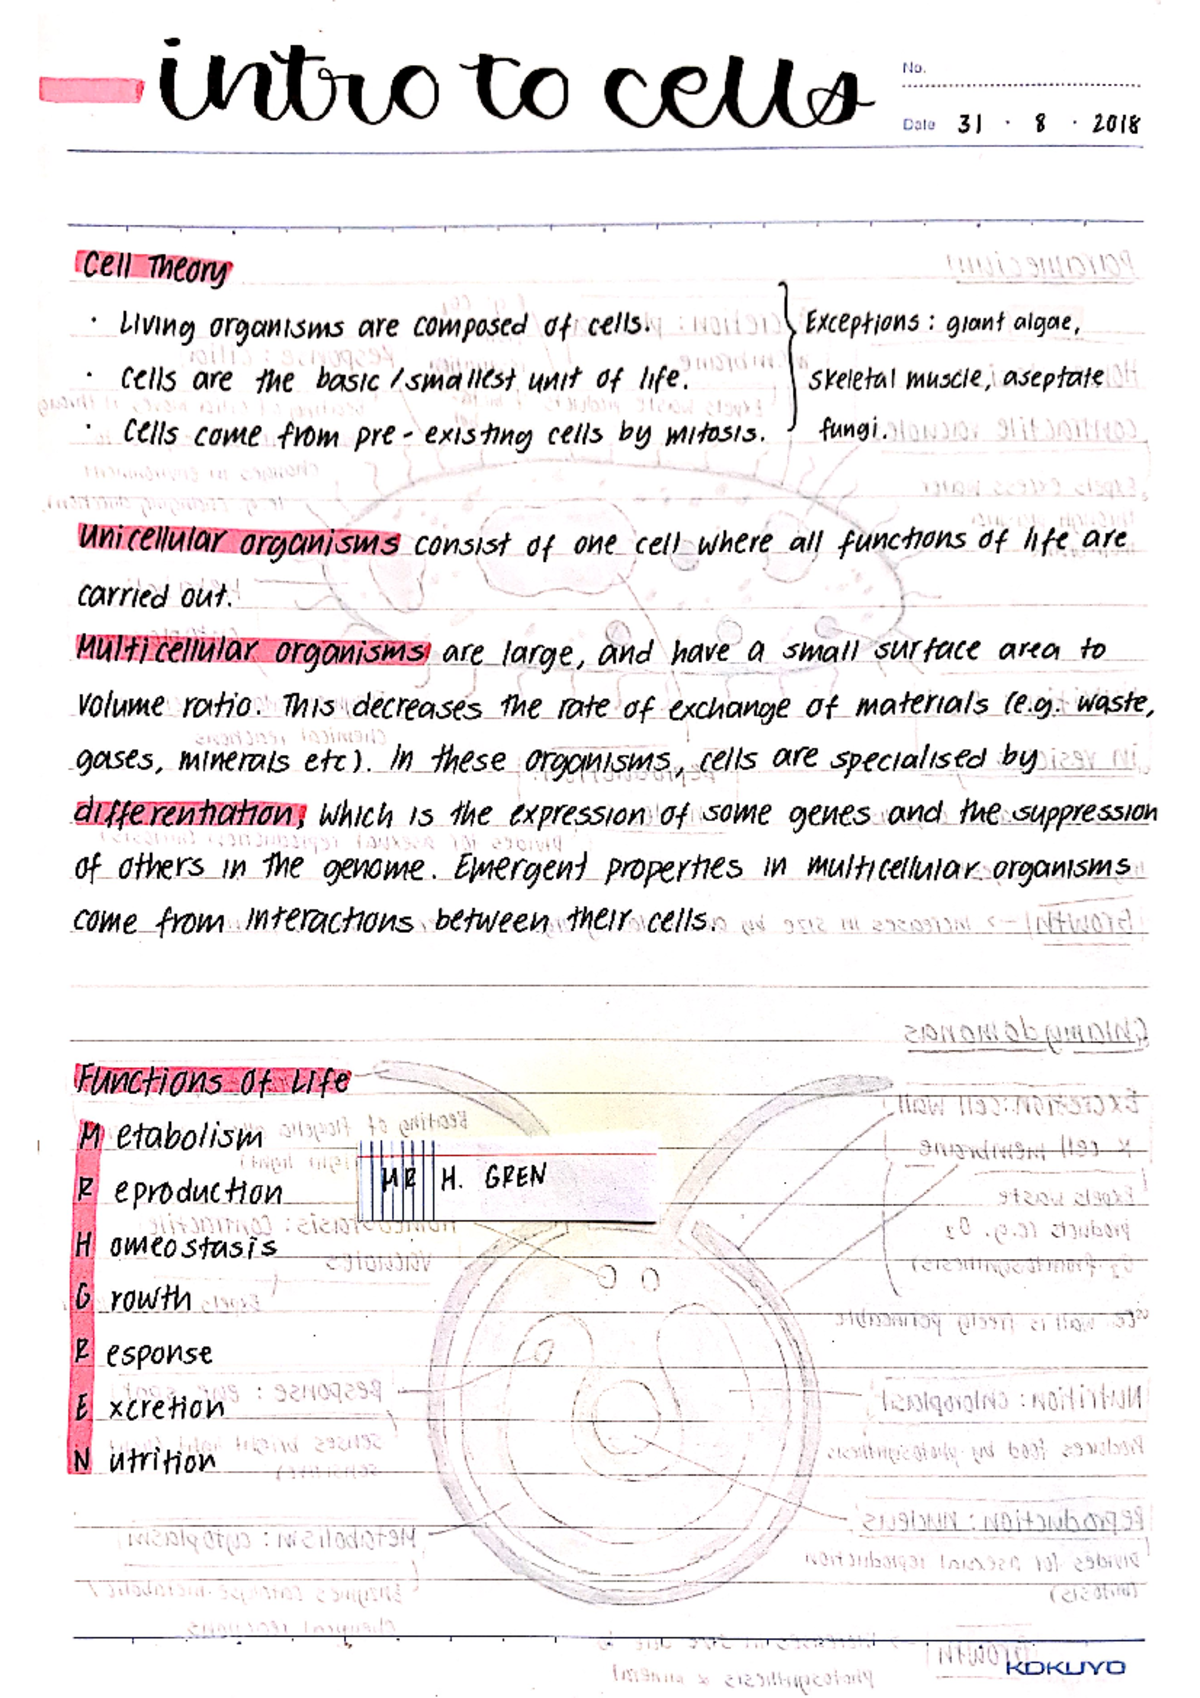 intro to cells
No.
Date 31 · 8 · 2018
Cell Theory
· Living organisms are composed of cells.
· Cells are the basic / smallest unit of life.
· Cells come from pre-existing cells by mitosis.
Exceptions: giant algae,
skeletal muscle, aseptate
fungi.
Unicellular organisms consist of one cell where all functions of life are
carried out.
Multicellular organisms are large, and have a small surface area to
volume ratio. This decreases the rate of exchange of materials (e.g. waste,
gases, minerals etc). In these organisms, cells are specialised by
differentiation, which is the expression of some genes and the suppression
of others in the genome. Emergent properties in multicellular organisms
come from interactions between their cells.
Functions of Life
Metabolism
Reproduction
Homeostasis
Growth
Response
Excretion
Nutrition
MR H. GREN
KOKUYO